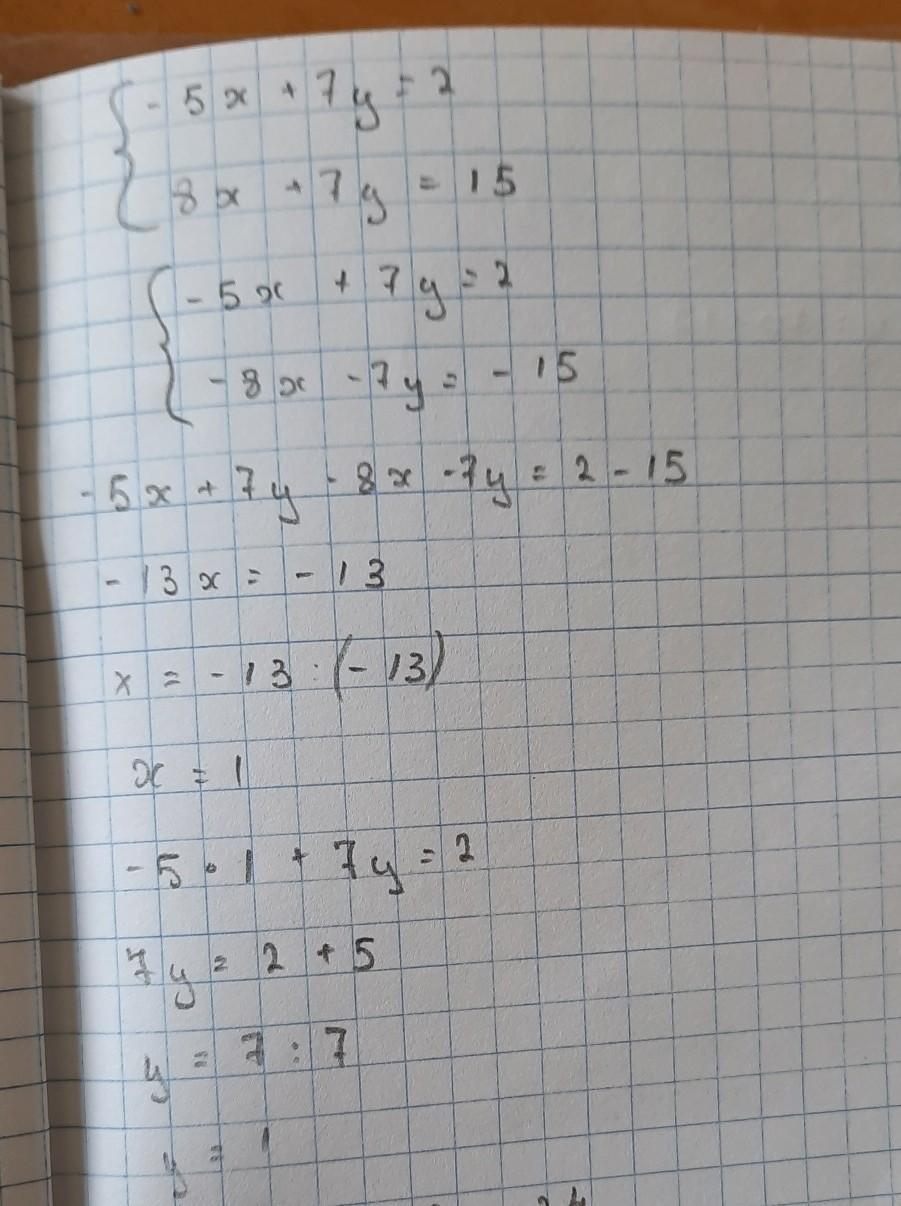 - 5x + 7y = 2
8x + 7y = 15
- 5x + 7y = 2
- 8x - 7y = - 15
- 5x + 7y - 8x - 7y = 2 - 15
- 13x = - 13
x = - 13 : (- 13)
x = 1
- 5 • 1 + 7y = 2
7y = 2 + 5
y = 7 : 7
y = 1